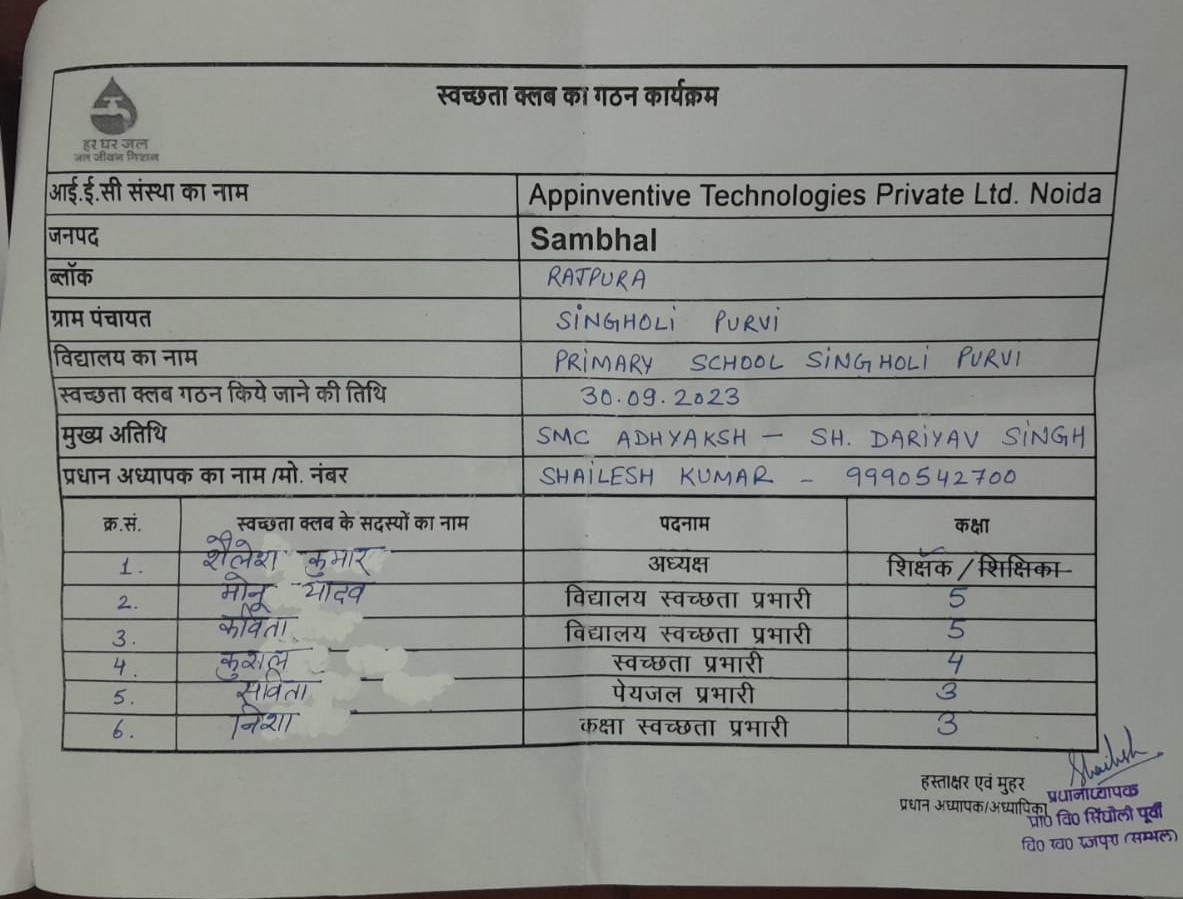 स्वच्छता क्लब का गठन कार्यक्रम
हर घर जल
जल जीवन मिशन
आई.ई.सी संस्था का नाम Appinventive Technologies Private Ltd. Noida
जनपद Sambhal
ब्लॉक RAJPURA
ग्राम पंचायत SINGHOLI PURVI
विद्यालय का नाम PRIMARY SCHOOL SINGHOLI PURVI
स्वच्छता क्लब गठन किये जाने की तिथि 30.09.2023
मुख्य अतिथि SMC ADHYAKSH - SH. DARIYAV SINGH
प्रधान अध्यापक का नाम /मो. नंबर SHAILESH KUMAR - 9990542700
क्र.सं. स्वच्छता क्लब के सदस्यों का नाम पदनाम कक्षा
1. शैलेश कुमार अध्यक्ष शिक्षक / शिक्षिका
2. मोनू यादव विद्यालय स्वच्छता प्रभारी 5
3. कविता विद्यालय स्वच्छता प्रभारी 5
4. कुशल स्वच्छता प्रभारी 4
5. सविता पेयजल प्रभारी 3
6. निशा कक्षा स्वच्छता प्रभारी 3
Shailesh
हस्ताक्षर एवं मुहर
प्रधान अध्यापक/अध्यापिका
प्रधानाध्यापक
प्रा० वि० सिंघोली पूर्वी
वि० ख० रजपुरा (सम्भल)